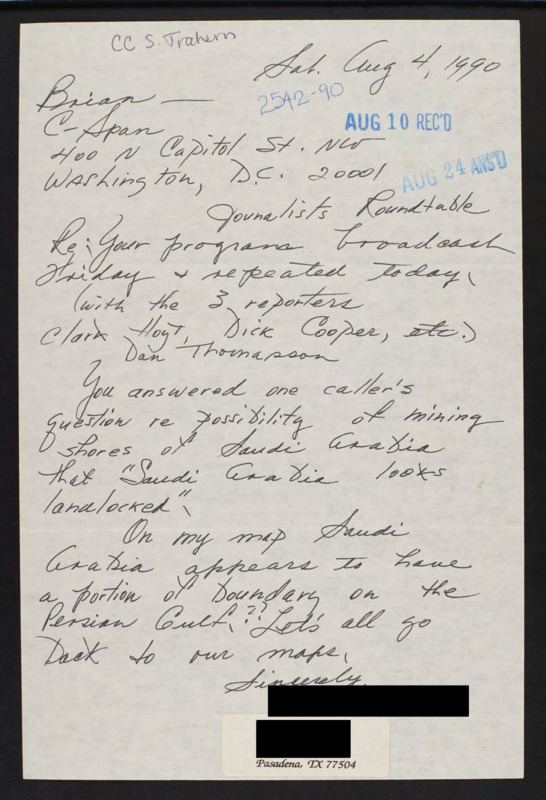 CC S. Trahern
Sat. Aug 4, 1990
Brian —
2542-90
C-Span
AUG 10 REC'D
400 N Capitol St. NW
Washington, D.C. 20001
AUG 24 ANS'D
Jounalists Roundtable
Re: Your program broadcast
Friday & repeated today,
(with the 3 reporters
Clark Hoyt, Dick Cooper, etc.)
Dan Thomasson
You answered one caller's
question re possibility of mining
shores of Saudi Arabia
that "Saudi Arabia looks
landlocked".
On my map Saudi
Arabia appears to have
a portion of boundary on the
Persian Gulf.?? Let's all go
back to our maps.
Sincerely,
Pasadena, TX 77504